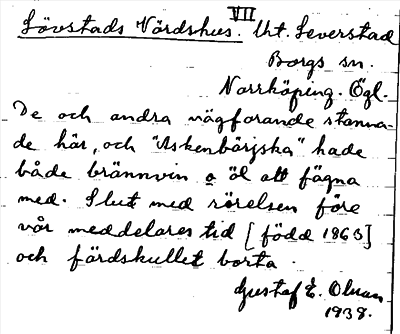 VII
Lövstads Värdshus. Utt. Leverstad
Borgs sn.
Norrköping. Ögl.
De och andra vägfarande stanna-
de här, och "Askenbörjska" hade
både brännvin o öl att fägna
med. Slut med rörelsen före
vår meddelares tid [född 1863]
och färdskullet borta.
Gustaf E. Olsson
1938.